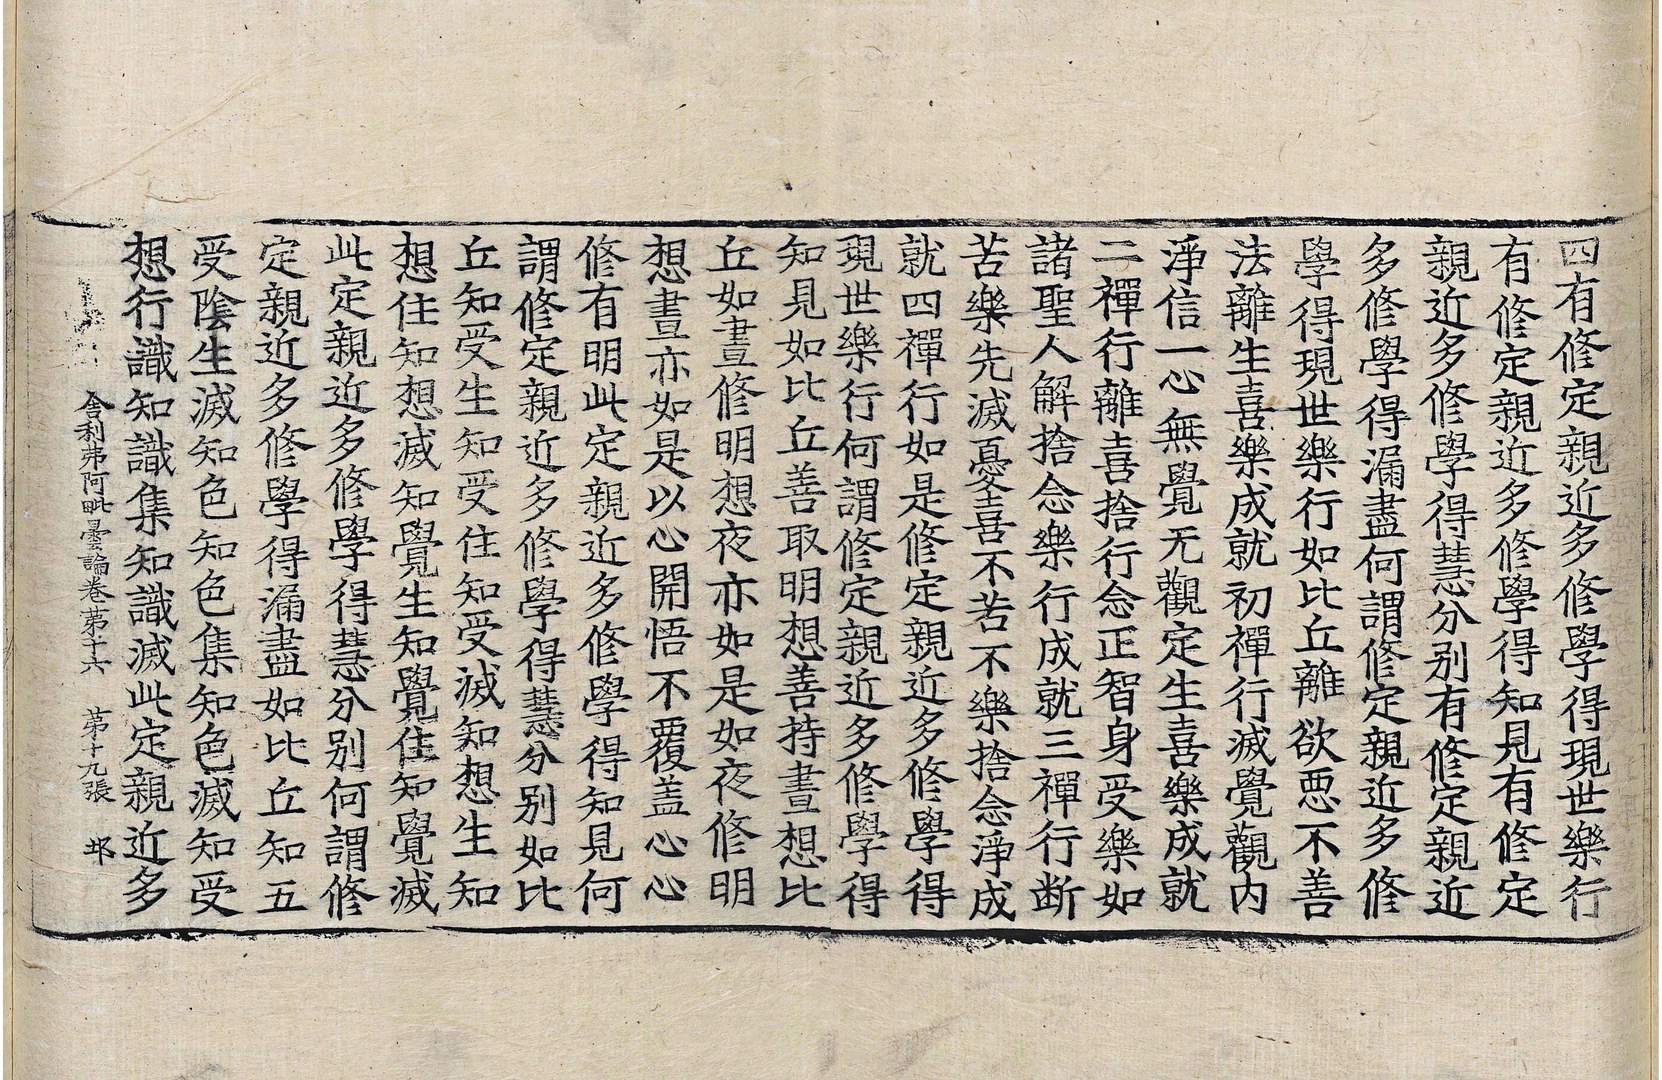 四有修定親近多修學得現世樂行
有修定親近多修學得知見有修定
親近多修學得慧分別有修定親近
多修學得漏盡何謂修定親近多修
學得現世樂行如比丘離欲惡不善
法離生喜樂成就初禪行滅覺觀內
淨信一心無覺无觀定生喜樂成就
二禪行離喜捨行念正智身受樂如
諸聖人解捨念樂行成就三禪行断
苦樂先滅憂喜不苦不樂捨念淨成
就四禪行如是修定親近多修學得
現世樂行何謂修定親近多修學得
知見如比丘善取明想善持晝想比
丘如晝修明想夜亦如是如夜修明
想晝亦如是以心開悟不覆盖心心
修有明此定親近多修學得知見何
謂修定親近多修學得慧分別如比
丘知受生知受住知受滅知想生知
想住知想滅知覺生知覺住知覺滅
此定親近多修學得慧分別何謂修
定親近多修學得漏盡如比丘知五
受陰生滅知色知色集知色滅知受
想行識知識集知識滅此定親近多
舍利弗阿毗曇論卷苐十六 苐十九張